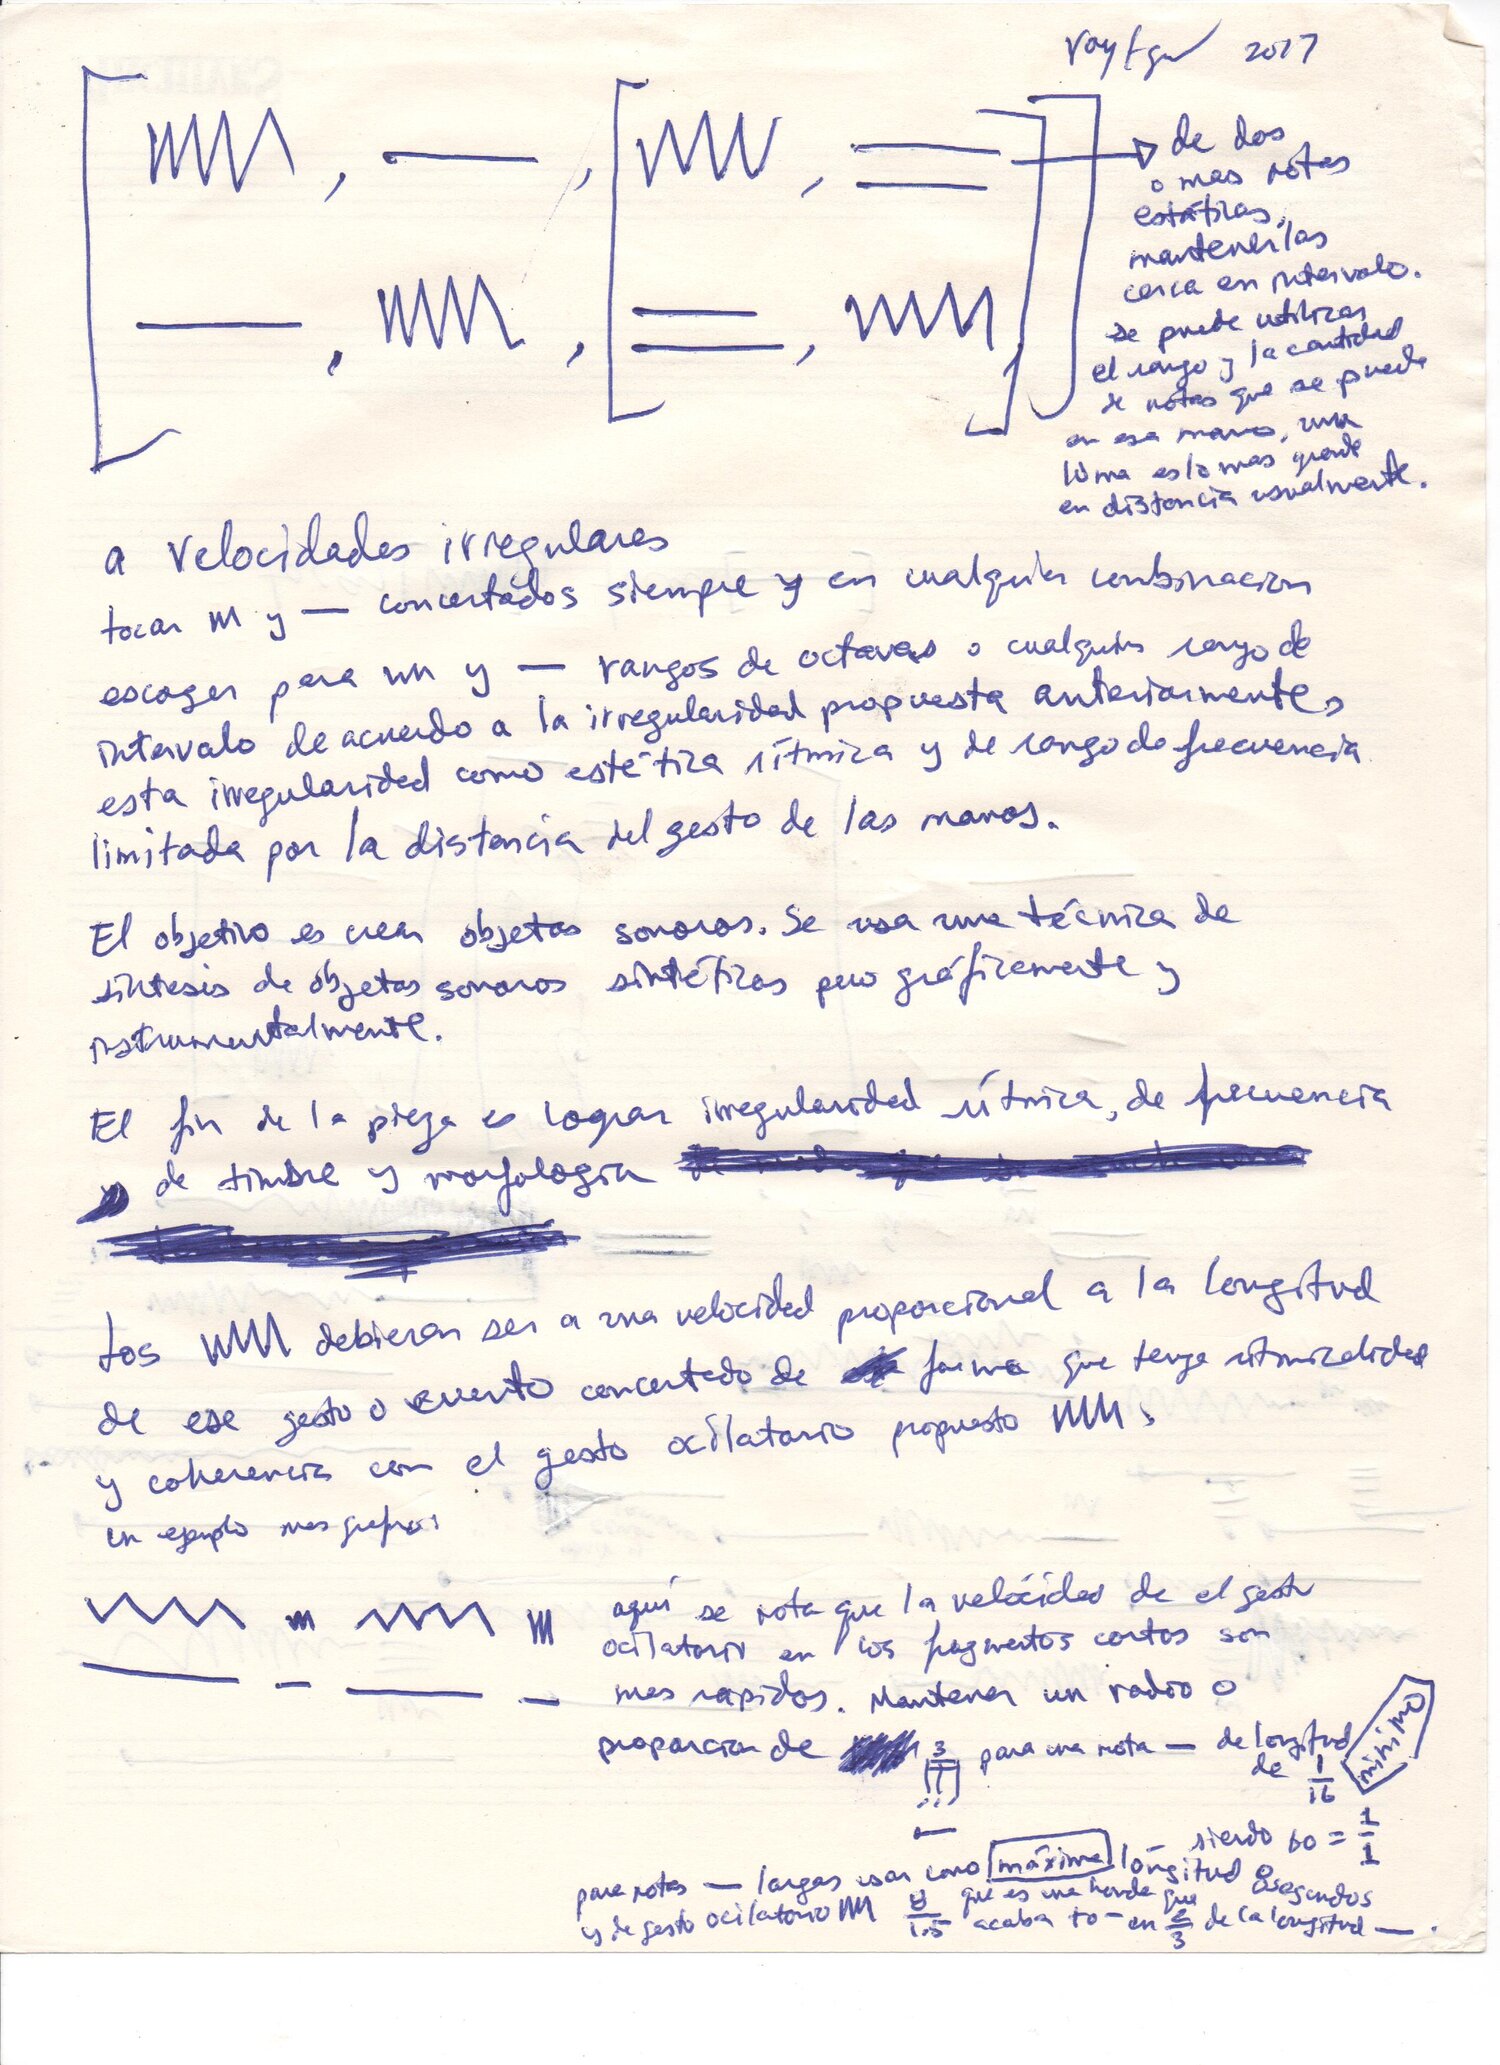 2017
de dos
o mas notas
estáticas,
mantenerlas
cerca en intervalo.
se puede utilizar
el rango y la cantidad
de notas que se puede
en esa mano, una
es lo mas grande
en distancia usualmente.
a velocidades irregulares
tocar y — concertados siempre y en cualquier combinacion
escoger para y — rangos de octavas o cualquier rango de
intervalo de acuerdo a la irregularidad propuesta anteriormente,
esta irregularidad como estética rítmica y de rango de frecuencia
limitada por la distancia del gesto de las manos.
El objetivo es crear objetos sonoros. Se usa una técnica de
síntesis de objetos sonoros sintéticos pero gráficamente y
instrumentalmente.
El fin de la pieza es lograr irregularidad rítmica, de frecuencia
de timbre y morfologia
Los debieran ser a una velocidad proporcional a la longitud
de ese gesto o evento concertado de forma que tenga ritmicalidad
y coherencia con el gesto ocilatorio propuesto
un ejemplo mas grafico:
aquí se nota que la velócidad de el gesto
ocilatorio en los fragmentos cortos son
mas rapidos. Mantener un radio o
proporcion de 3 para una nota — de longitud
de 1/16 minimo
siendo 60 = 1/1
para notas — largas usar como máxima lóngitud segundos
y de gesto ocilatorio /1.5 que es una que
acaba en /3 de la longitud — .